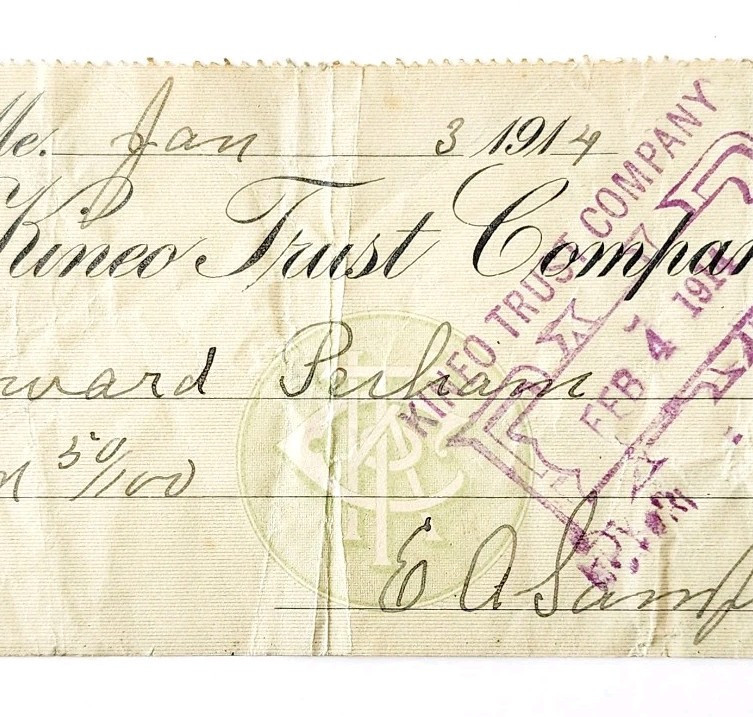 Me. Jan 3 1914
Kineo Trust Company
Perham
50/100
E A Samp
KINEO TRUST COMPANY
FEB 4 191